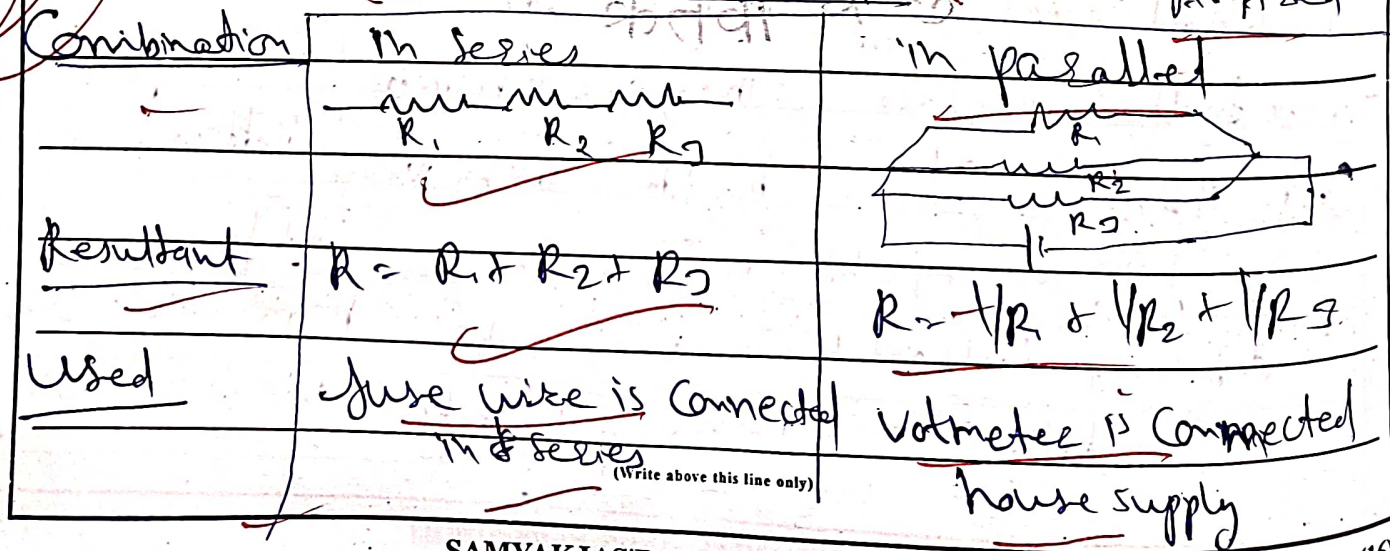 Combination in series in parallel
R1 R2 R3
R1
R2
R3
Resultant R = R1 + R2 + R3
R = 1/R1 + 1/R2 + 1/R3
Used fuse wire is Connected Votmeter is Connected
in series
(Write above this line only)
house supply